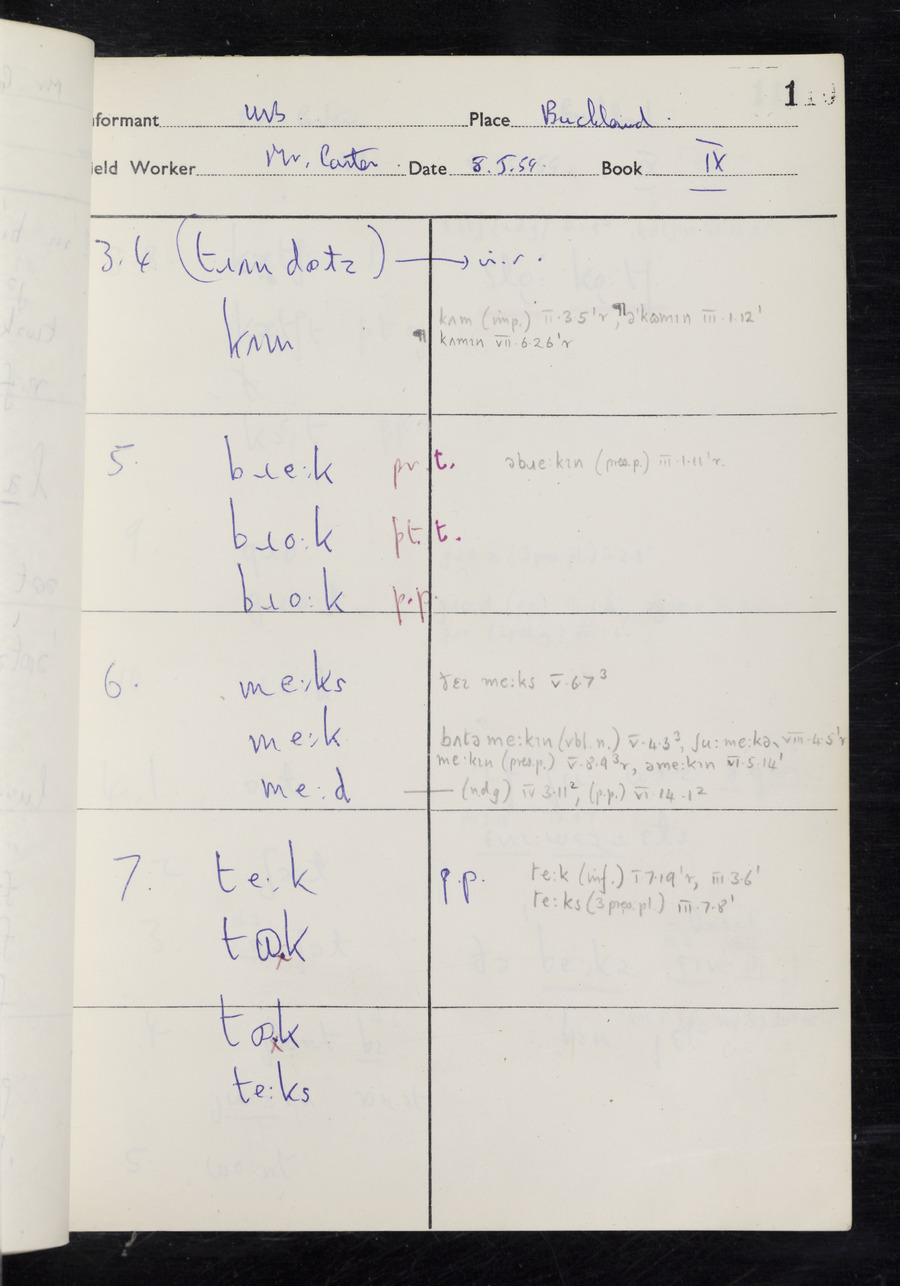 1
nformant WB. Place Buckland.
ield Worker Mr. Carter. Date 8.5.59. Book IX
3.4 → n.r.
kʌm
kʌm (imp.) II·3·5'r, ¶ə'kɷmɪn III·1·12'
¶ kʌmɪn VII·6·26'r
5. bɹe:k pr.t. əbɹe:kɪn (pres.p.) III·1·11'r.
bɹo:k pt.t.
bɹo:k p.p.
6. me:ks me:ks V·6·7³
me:k bʌtə me:kɪn (vbl.n.) V·4·3³, ʃu: me:kə VIII·4·5'r
me:kɪn (pres.p.) V·8·9³r, əme:kɪn VI·5·14'
me:d — (ndg) IV 3·11², (p.p.) VI·14·1²
7. te:k p.p. te:k (inf.) I 7·19'r, III 3·6'
te:ks (3 pres.pl.) III·7·8'
tɷk
tɷk
te:ks